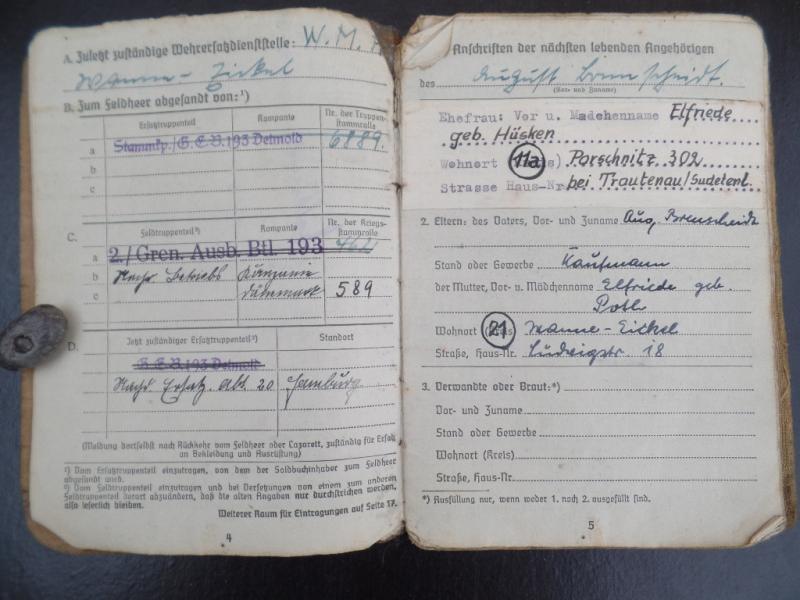 A. Zuletzt zuständige Wehrersatzdienststelle: W. M. A.
Wanne-Eickel
B. Zum Feldheer abgesandt von:¹)
Ersatztruppenteil Kompanie Nr. der Truppen-
stammrolle
a Stammkp./G.E.B.193 Detmold 6889.
b
c
C. Feldtruppenteil²) Kompanie Nr. der Kriegs-
stammrolle
a 2./Gren. Ausb. Btl. 193
b Nachr Betriebs Kompanie
c Dänemark 589
D. Jetzt zuständiger Ersatztruppenteil²) Standort
G.E.B.193 Detmold
Nachr Ersatz. Abt. 20 Hamburg
(Meldung dortselbst nach Rückkehr vom Feldheer oder Lazarett, zuständig für Ersatz
an Bekleidung und Ausrüstung)
¹) Vom Ersatztruppenteil einzutragen, von dem der Soldbuchinhaber zum Feldheer
abgesandt wird.
²) Vom Feldtruppenteil einzutragen und bei Versetzungen von einem zum anderen
Feldtruppenteil derart abzuändern, daß die alten Angaben nur durchstrichen werden,
also leserlich bleiben.
Weiterer Raum für Eintragungen auf Seite 17.
4
Anschriften der nächsten lebenden Angehörigen
des August Brenscheidt.
(Vor- und Zuname)
Ehefrau: Vor u. Mädchenname Elfriede
geb. Hüsken
Wohnort 11a Parschnitz 302
Strasse Haus-Nr bei Trautenau/Sudetenl.
2. Eltern: des Vaters, Vor- und Zuname Aug. Brenscheidt
Stand oder Gewerbe Kaufmann
der Mutter, Vor- u. Mädchenname Elfriede geb.
Wohnort (Kreis) 21 Wanne-Eickel
Straße, Haus-Nr. Ludwigstr. 18
3. Verwandte oder Braut:*)
Vor- und Zuname
Stand oder Gewerbe
Wohnort (Kreis)
Straße, Haus-Nr.
*) Ausfüllung nur, wenn weder 1. noch 2. ausgefüllt sind.
5